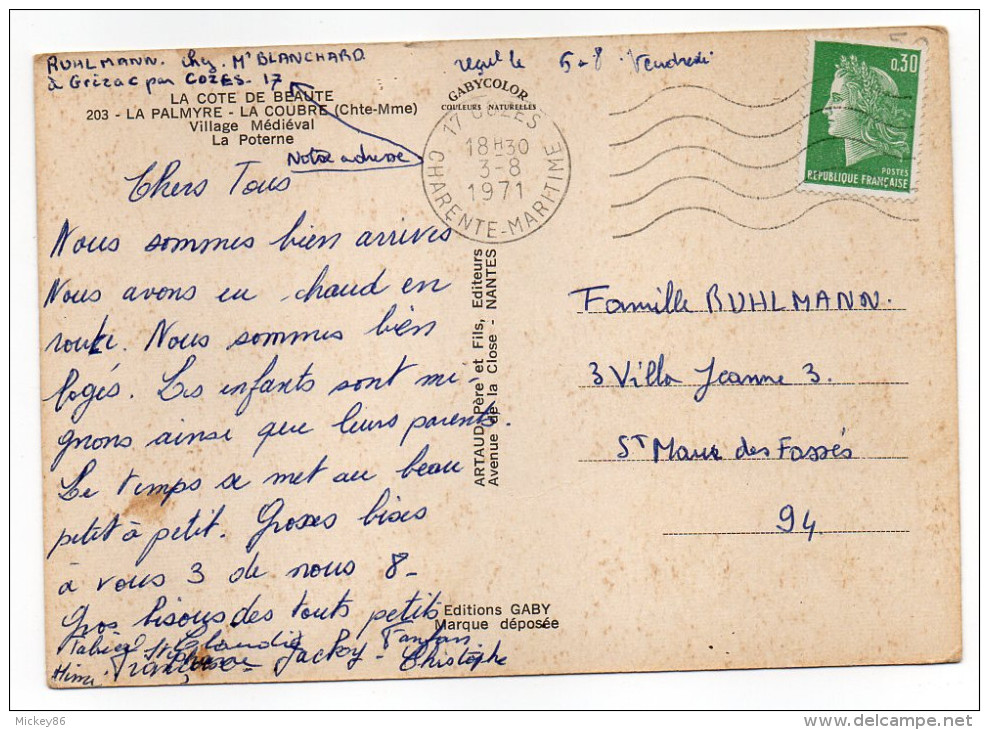 RUHLMANN. chz. Mr BLANCHARD
à Grézac par COZES. 17
reçut le 5-8 Vendredi
LA COTE DE BEAUTE
203 - LA PALMYRE - LA COUBRE (Chte-Mme)
Village Médiéval
La Poterne
GABYCOLOR
COULEURS NATURELLES
Notre adresse
17 COZES
18H30
3-8
1971
CHARENTE-MARITIME
0,30
POSTES
REPUBLIQUE FRANÇAISE
Chers Tous
Nous sommes bien arrivés
Nous avons eu chaud en
route. Nous sommes bien
logés. Les enfants sont mi-
gnons ainsi que leurs parents.
Le temps se met au beau
petit à petit. Grosses bises
à vous 3 de nous 8-
Gros bisous des touts petits
Claudia Fanfan
Françoise Jacky - Christophe
ARTAUD Père et Fils, Editeurs
Avenue de la Close - NANTES
Editions GABY
Marque déposée
Famille RUHLMANN.
3 Villa Jeanne 3.
ST Maur des Fossés
94
Mickey86
delcampe.net